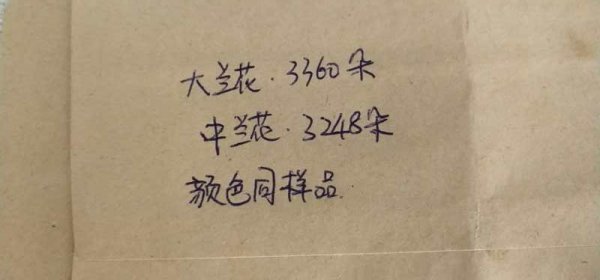 大兰花·3360朵
中兰花·3248朵
颜色同样品